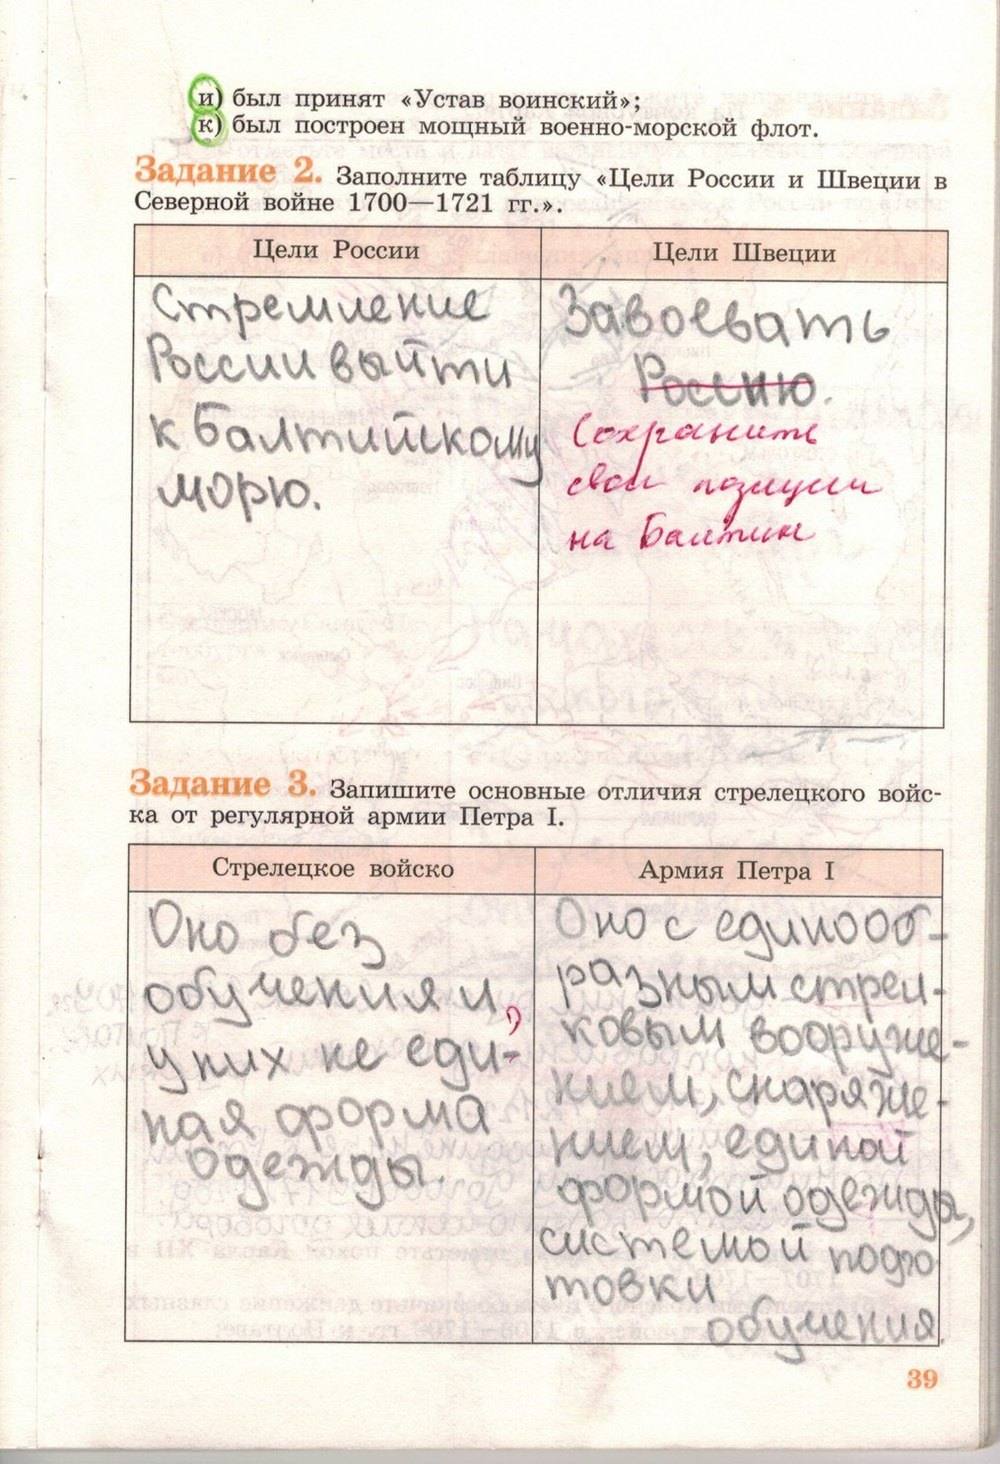 и) был принят «Устав воинский»;
к) был построен мощный военно-морской флот.
Задание 2. Заполните таблицу «Цели России и Швеции в
Северной войне 1700—1721 гг.».
Цели России
Стремление
России выйти
к Балтийскому
морю.
Цели Швеции
Завоевать
Россию.
Сохранить
свои позиции
на Балтии
Задание 3. Запишите основные отличия стрелецкого войс-
ка от регулярной армии Петра I.
Стрелецкое войско
Оно без
обучения и,
у них не еди-
ная форма
одежды.
Армия Петра I
Оно с единооб-
разным стрел-
ковым вооруже-
нием, снаряже-
нием, единой
формой одежды,
системой подго
товки
обучения.
39